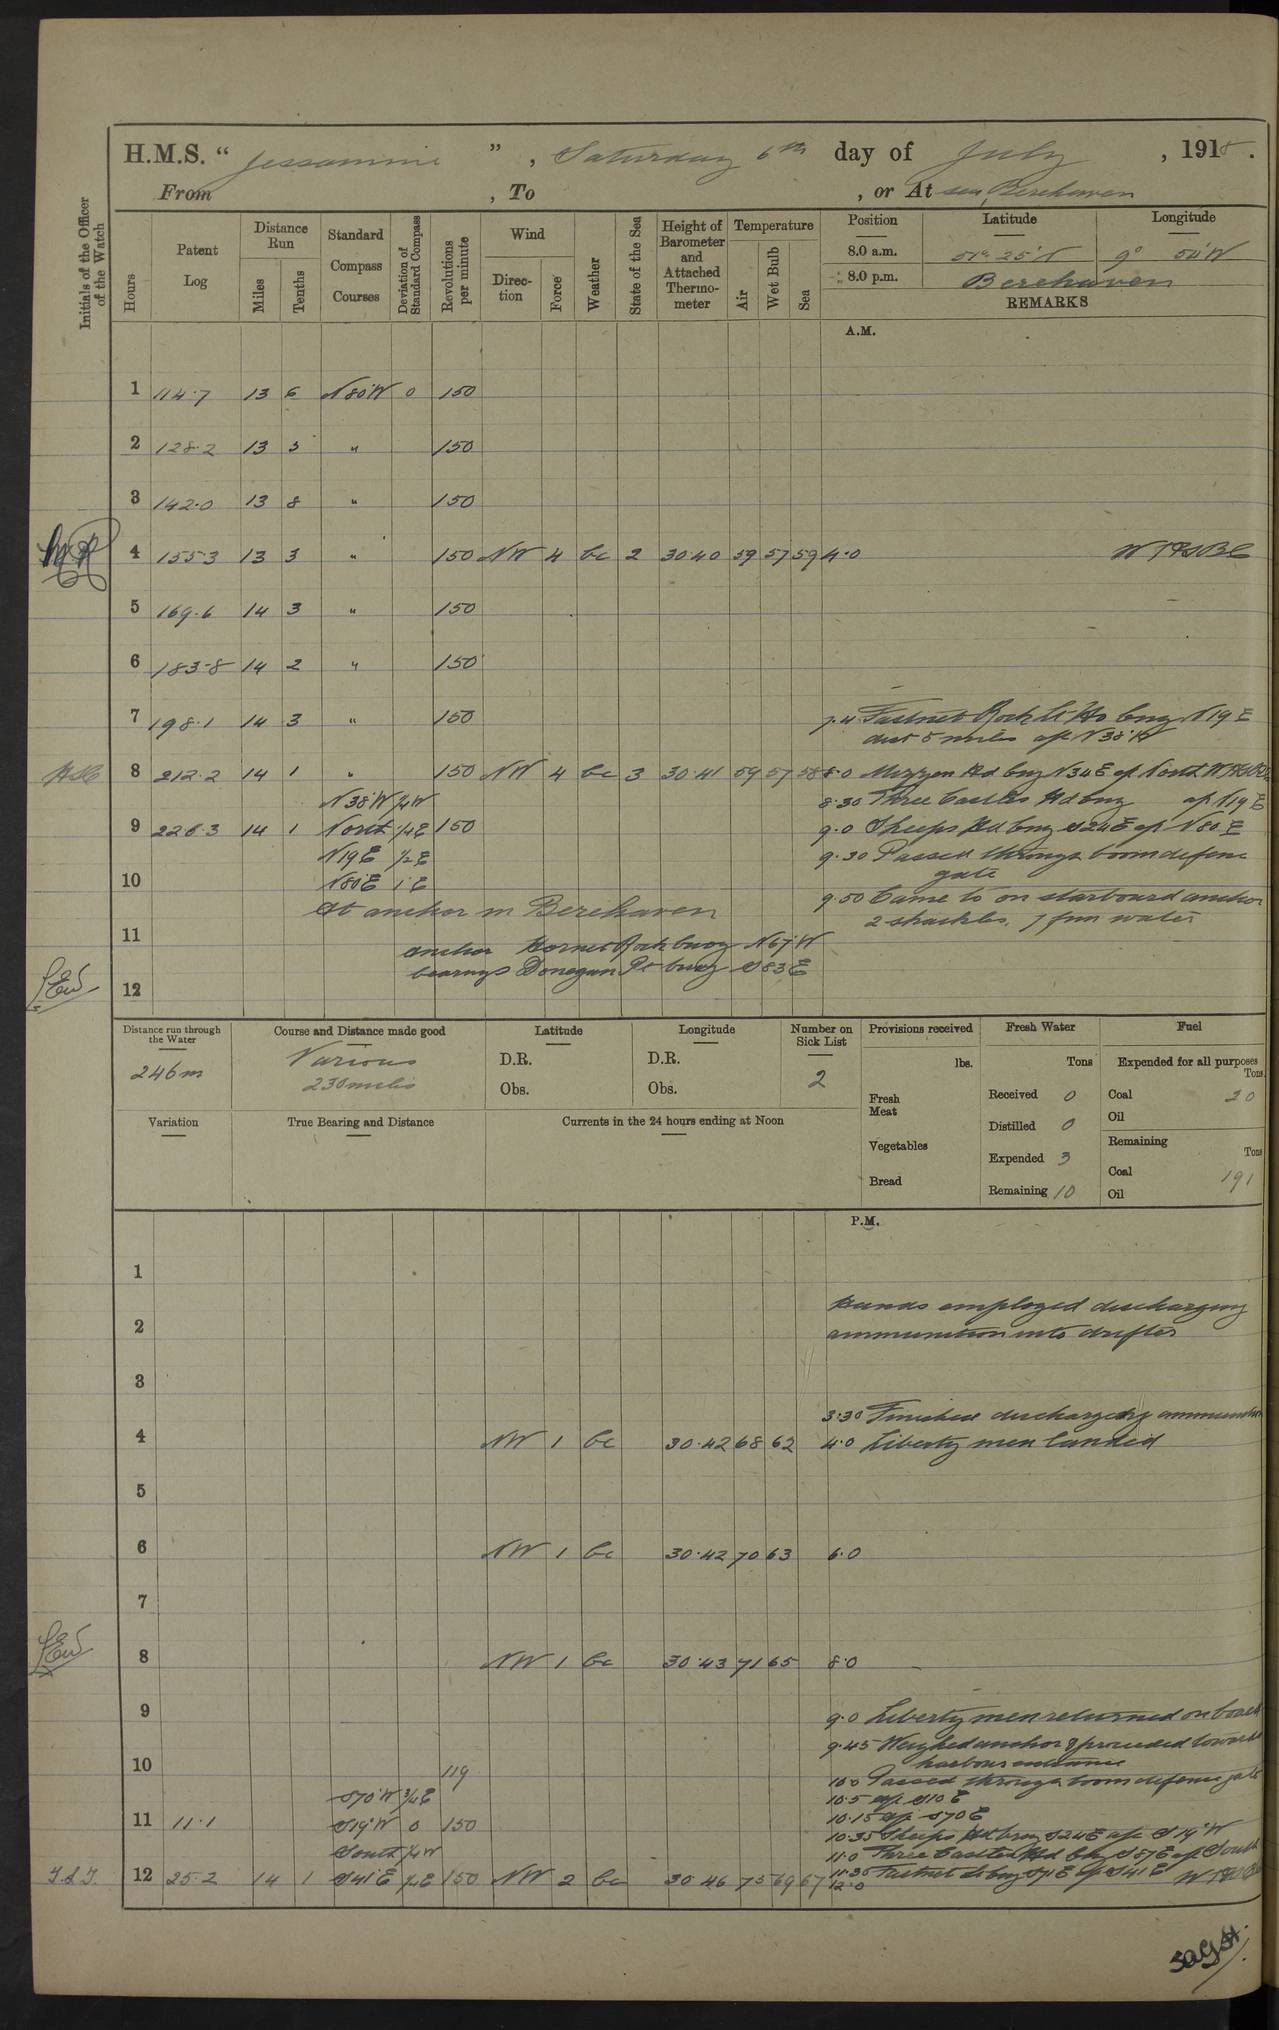 H.M.S. " Jessamine " , Saturday 6th day of July , 1918 .
From , To , or At sea, Berehaven
Initials of the Officer of the Watch
Hours
Patent Log
Distance Run
Miles
Tenths
Standard Compass Courses
Deviation of Standard Compass
Revolutions per minute
Wind
Direction
Force
Weather
State of the Sea
Height of Barometer and Attached Thermometer
Temperature
Air
Wet Bulb
Sea
Position Latitude Longitude
8.0 a.m. 51° 25' N 9° 54' W
8.0 p.m. Berehaven
REMARKS
A.M.
1 114.7 13 6 N80°W 0 150
2 128.2 13 5 " 150
3 142.0 13 8 " 150
4 155.3 13 3 " 150 NW 4 bc 2 30.40 59 57 59 4.0
5 169.6 14 3 " 150
6 183.8 14 2 " 150
7 198.1 14 3 " 150 7.4 Fastnet Rock Lt Ho brng N19E
dist 5 miles a/c N38°W
8 212.2 14 1 " 150 NW 4 bc 3 30.41 59 57 58 8.0 Mizzen Hd brng N34E a/c North
N38°W ¼W 8.30 Three Castles Hd brng a/c N19E
9 226.3 14 1 North ¼E 150 9.0 Sheeps Hd brng S24E a/c N80E
N19E ½E 9.30 Passed through boom defence
gate
10 N80E 1°E
9.50 Came to on starboard anchor
At anchor in Berehaven
2 shackles. 7 fms water
11
anchor Hornet Rock buoy N67°W
bearings Donegan Pt buoy S83E
12
Distance run through the Water
246m
Course and Distance made good
Various
230 miles
Latitude
D.R.
Obs.
Longitude
D.R.
Obs.
Number on Sick List
2
Provisions received
lbs.
Fresh Meat
Vegetables
Bread
Fresh Water
Tons
Received 0
Distilled 0
Expended 3
Remaining 10
Fuel
Expended for all purposes
Tons
Coal 20
Oil
Remaining
Tons
Coal 191
Oil
Variation
True Bearing and Distance
Currents in the 24 hours ending at Noon
P.M.
1
Hands employed discharging
2
ammunition into drifter
3
3.30 Finished discharging ammunition
4 NW 1 bc 30.42 68 62 4.0 Liberty men landed
5
6 NW 1 bc 30.42 70 63 6.0
7
8 NW 1 bc 30.43 71 65 8.0
9 9.0 Liberty men returned on board
9.45 Weighed anchor & proceeded towards
harbour entrance
10 119
10.0 Passed through boom defence gate
S70°W ¾E 10.5 a/c S10E
10.15 a/c S70E
11 11.1 S19°W 0 150
10.35 Sheeps Hd brng S24E a/c S19°W
South ¼W 11.0 Three Castles Hd S57E a/c South
11.35 Fastnet Lt brng S71E a/c S41E
12 25.2 14 1 S41E ¼E 150 NW 2 bc 30.46 75 69 67 12.0